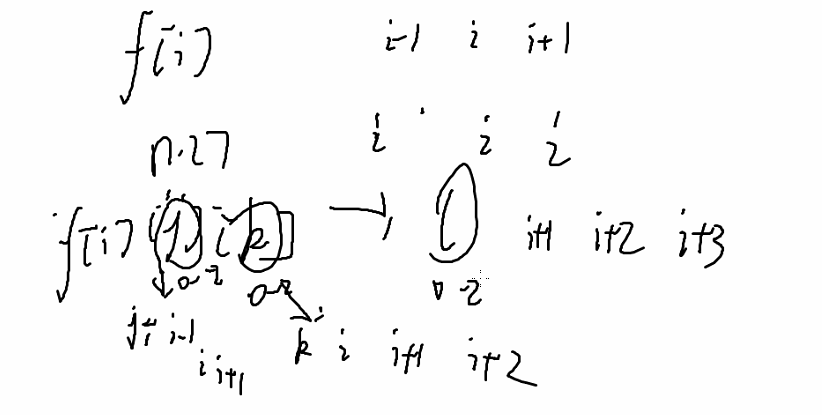 f[i] i-1 i i+1
i i 2
n·27
f[i][j][k] → l i+1 i+2 i+3
0~2 0~2 0 2
j: i-1 k: i i+1 i+2
i i+1